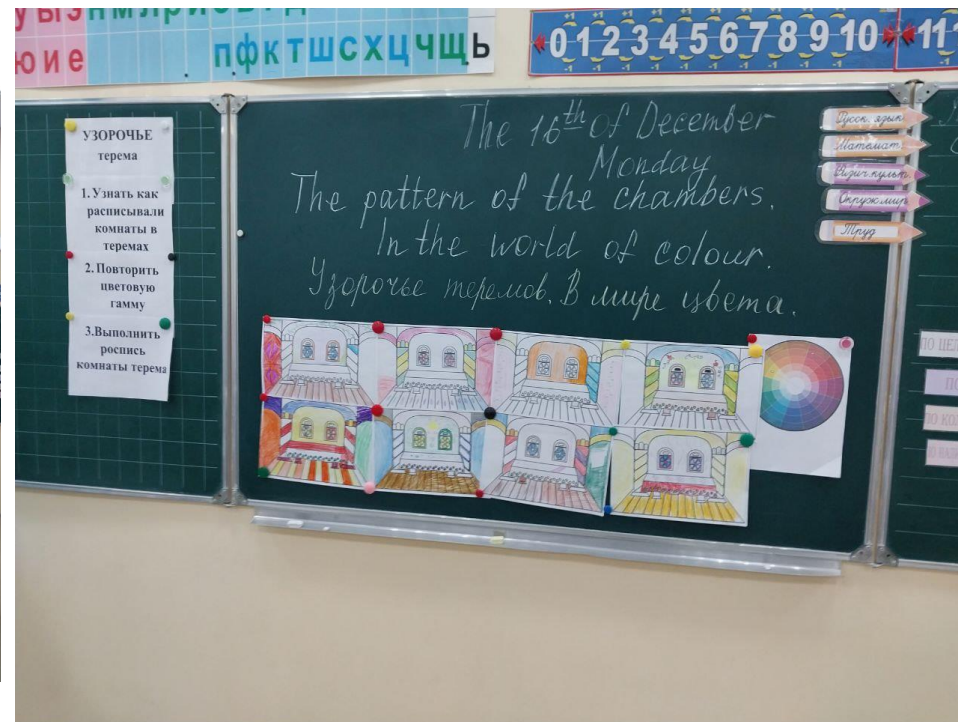 уыэ
юие пфктшсхцчщь
0 1 2 3 4 5 6 7 8 9 10 11
УЗОРОЧЬЕ
терема
1. Узнать как
расписывали
комнаты в
теремах
2. Повторить
цветовую
гамму
3.Выполнить
роспись
комнаты терема
The 16th of December
Monday
The pattern of the chambers.
In the world of colour.
Узорочье теремов. В мире цвета.
Русск. язык
Математ.
Физич.культ
Окруж.мир
Труд
ПО ЦЕЛ
ПО КОЛ